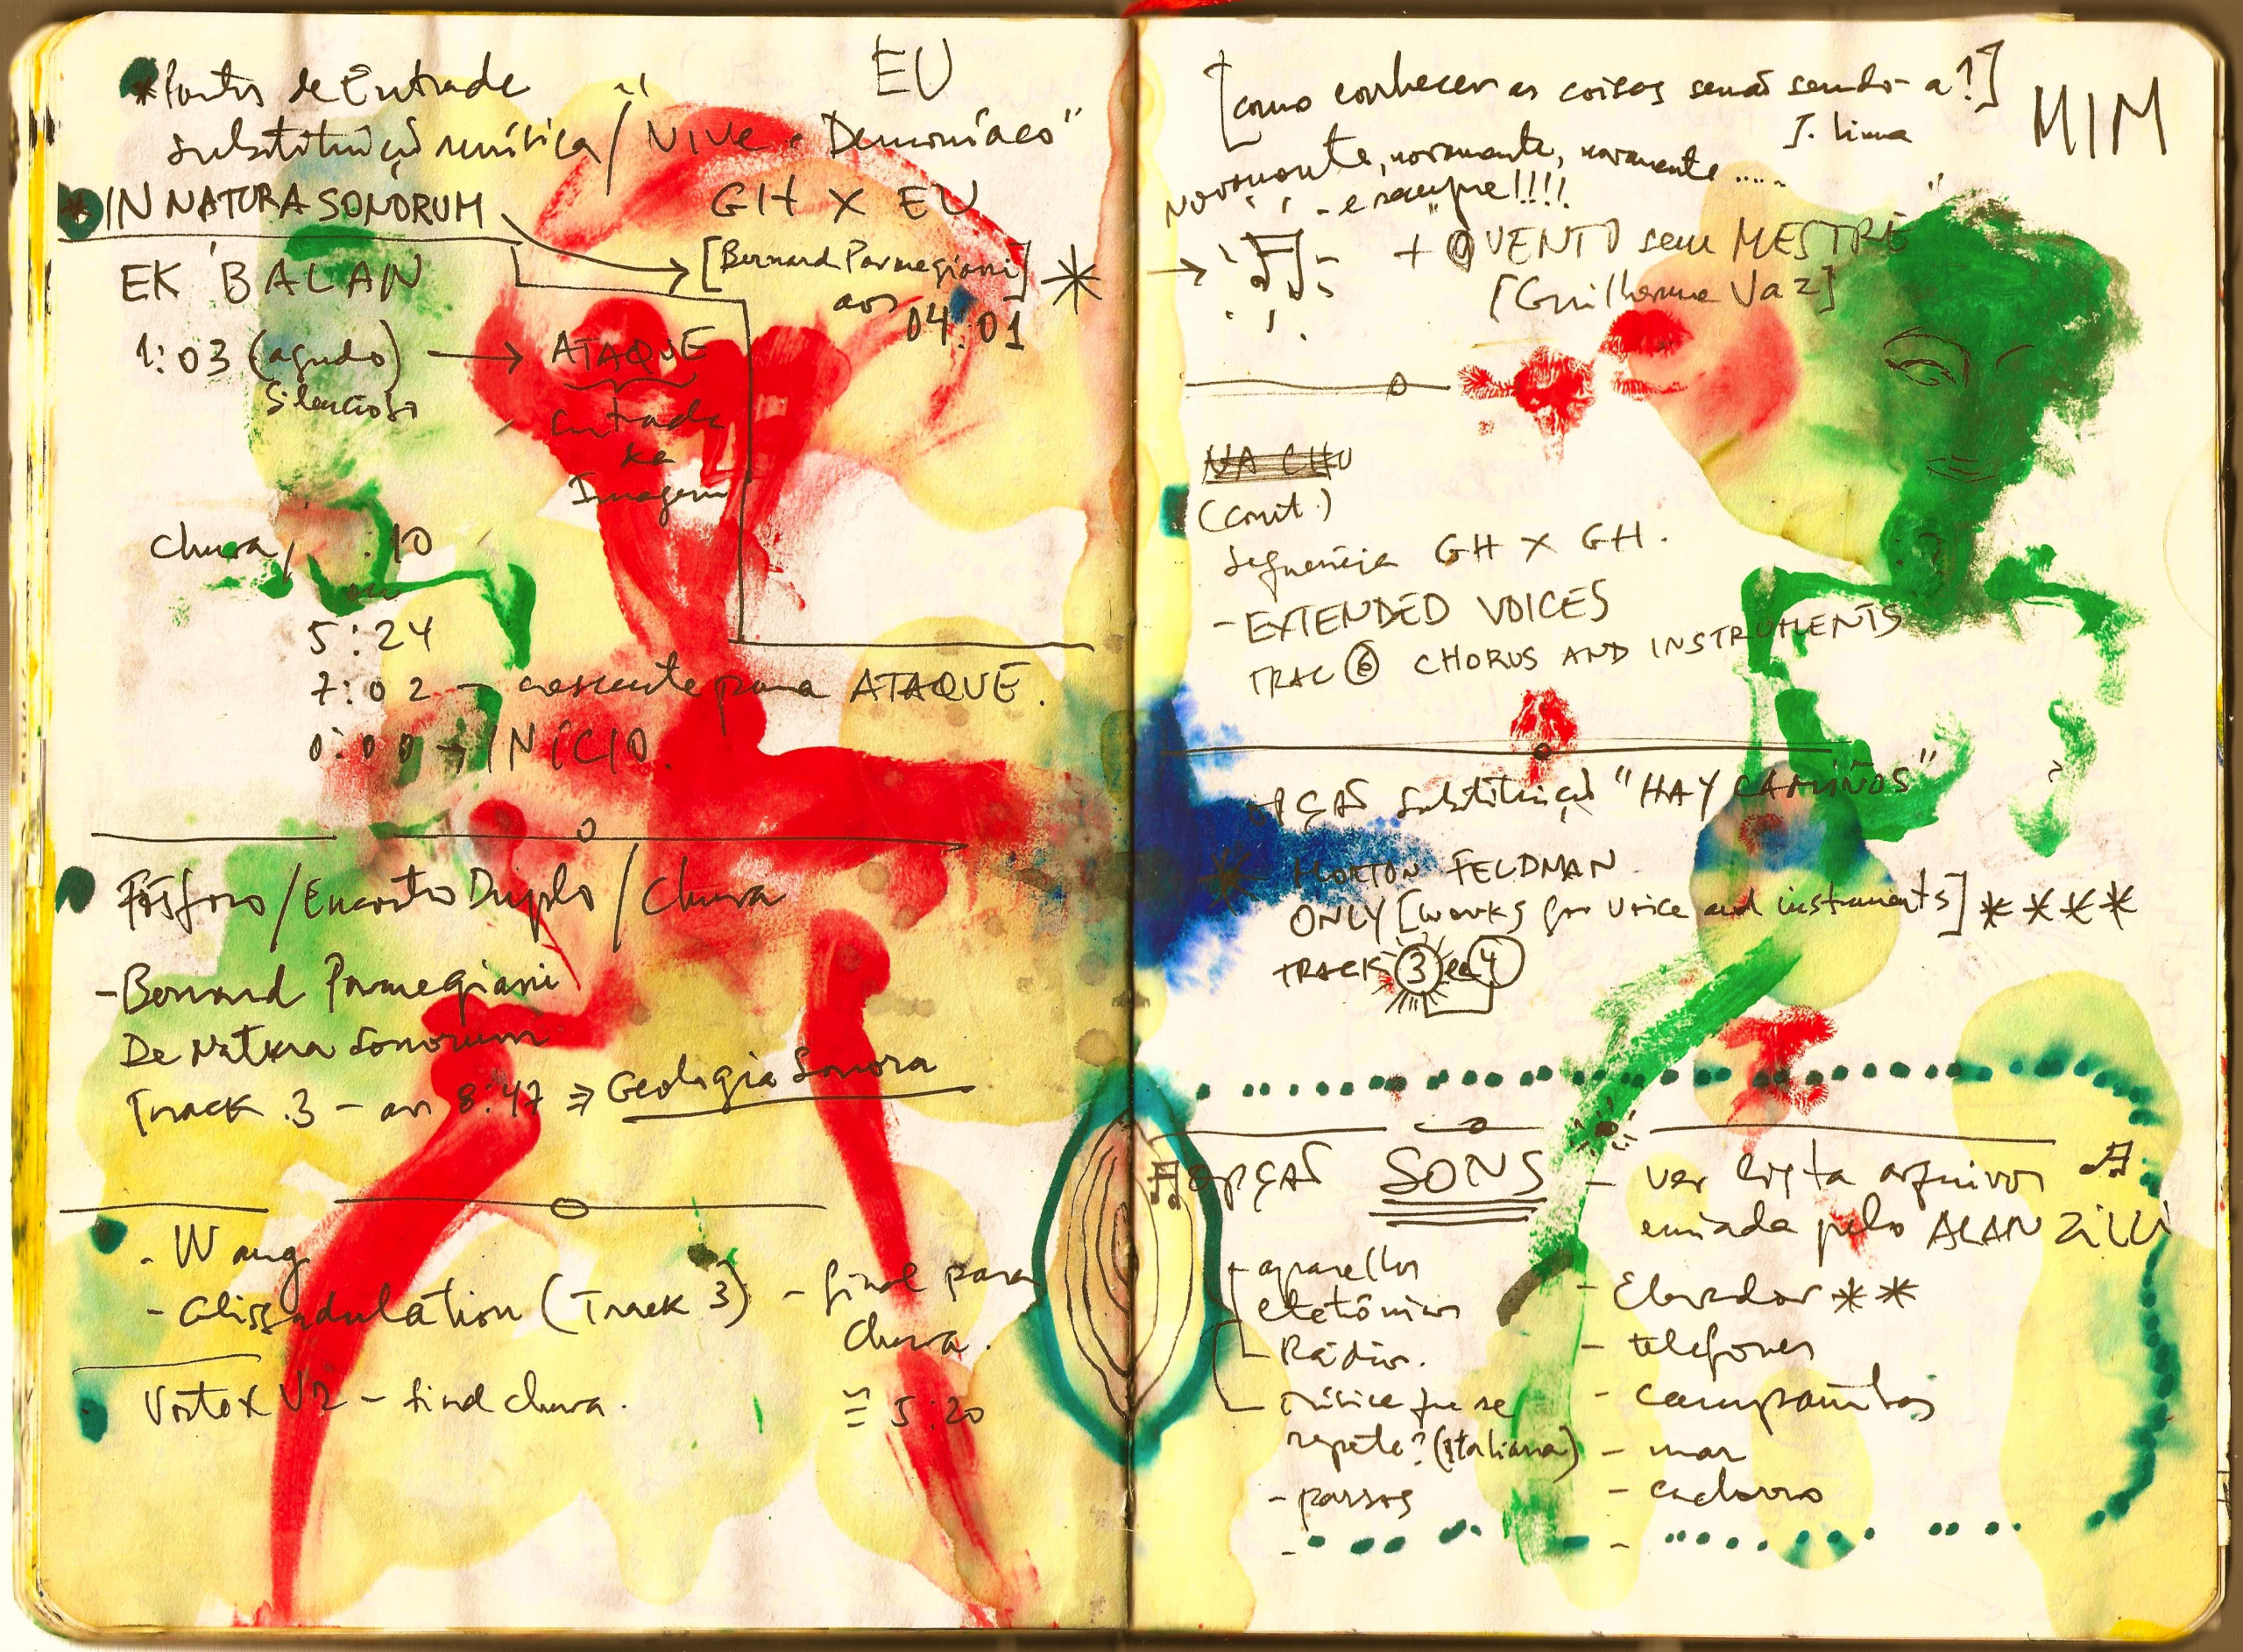 EU
* Pontos de Entrada
Substituição música / "VIVE • Demoníaco"
* IN NATURA SONORUM
GH X EU
[Bernard Parmegiani] *
aos
04:01
EK' BALAN
1:03 (agudo) → ATAQUE
Silencioso
entrada
da
Imagem
chuva / :10
ou
5:24
7:02 → crescente para ATAQUE.
0:00 → INÍCIO.
Fósforo / Encontro Duplo / Chuva
- Bernard Parmegiani
De Natura Sonorum
Track .3 - aos 8:47 ⇒ Geologia Sonora
- Wang
- Glissandulation (Track 3) - final para
chuva.
Vortex V2 - final chuva.
5:20
[como conhecer as coisas senão sendo-a?]
J. Lima
MIM
Novamente, novamente, novamente .....
- e sempre!!!!
→ ♫ + "O VENTO sem MESTRE"
[Guilherme Vaz]
NA CHU
(cont.)
Sequência GH X GH.
- EXTENDED VOICES
TRAC ⑥ CHORUS AND INSTRUMENTS
OPÇÃO Substituição "HAY CAMIÑOS"
* MORTON FELDMAN
ONLY [works for voice and instruments] * * * *
TRACK 3 e 4
♫ OPÇÃO SONS
- ver lista arquivos ♫
enviada pelo ALAN ZILLI
- aparelhos
eletônicos
- Rádio.
- música que se
repete? (italiana)
- passos
-
- Elevador * *
- telefones
- campainhas
- mar
- cachorro
-